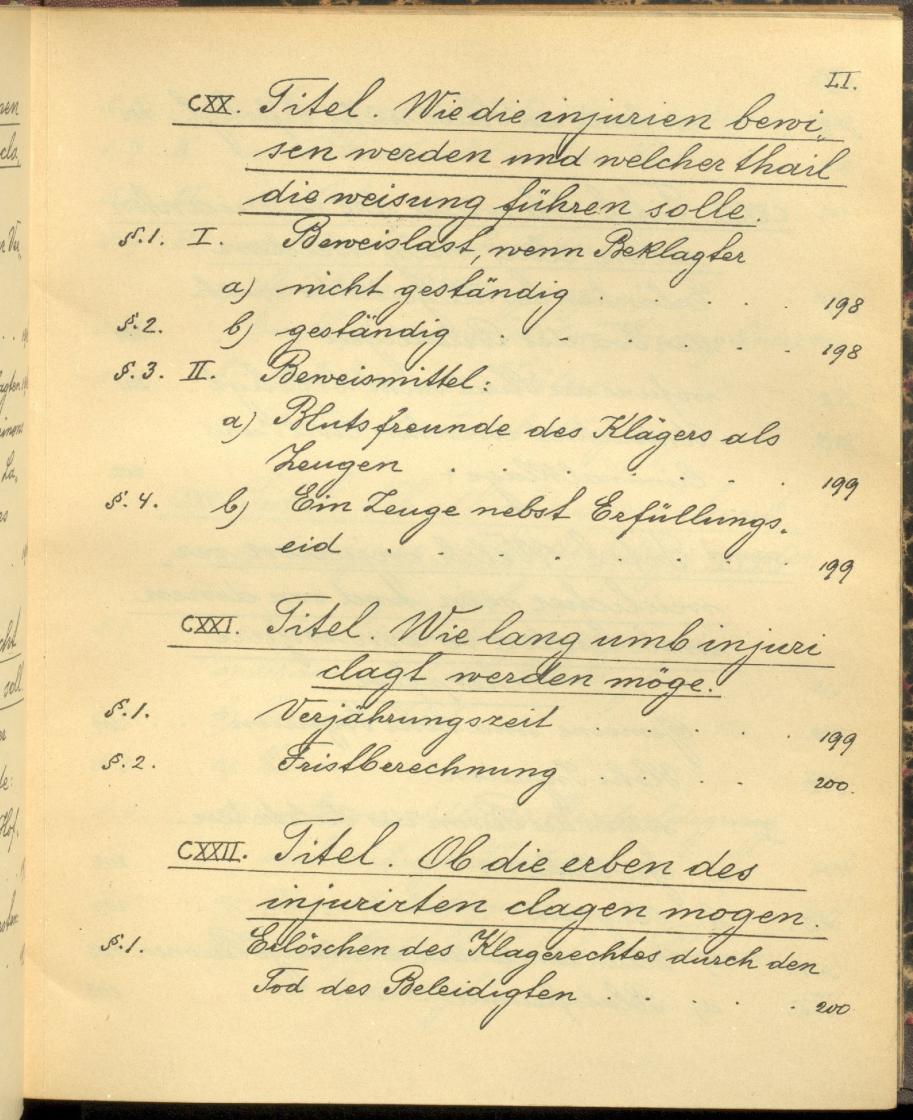 LI.
CXX. Titel. Wie die injurien bewi„
sen werden und welcher thail
die weisung führen solle.
§.1. I. Beweislast, wenn Beklagter
a) nicht geständig . . . . 198
§.2. b) geständig . . . . 198
§.3. II. Beweismittel:
a) Blutsfreunde des Klägers als
Zeugen . . . . . 199
§.4. b) Ein Zeuge nebst Erfüllungs„
eid . . . . . 199
CXXI. Titel. Wie lang umb injuri
clagt werden möge.
§.1. Verjährungszeit . . . 199
§.2. Fristberechnung . . 200.
CXXII. Titel. Ob die erben des
injurirten clagen mogen.
§.1. Erlöschen des Klagerechtes durch den
Tod des Beleidigten . . . . . 200